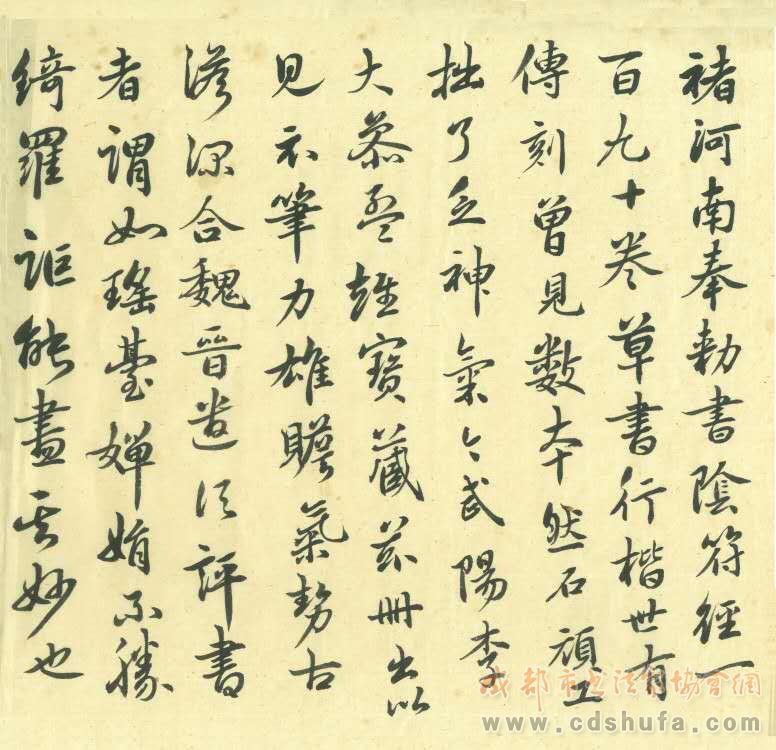 褚河南奉勅書陰符經一
百九十卷草書行楷世有
傳刻曾見數本然石頑工
拙了乏神氣今武陽李
大恭孟雄寶藏茲冊出以
見示筆力雄贍氣勢古
淡深合魏晉遺 評書
者謂如瑤臺嬋娟不勝
綺羅詎能盡其妙也
成都市书法家协会網
www.cdshufa.com